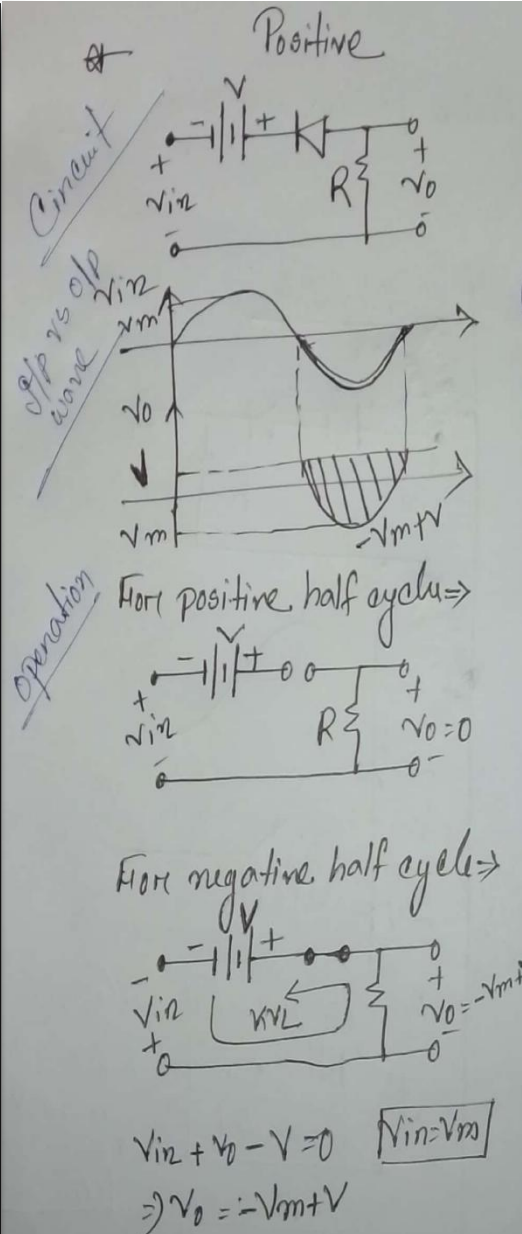 Positive
Circuit
- V +
+
Vin
-
R
+
Vo
-
I/P vs O/P
wave
Vin
Vm
Vo
V
Vm
-Vm+V
Operation
For positive half cycle⇒
- V +
+
Vin
-
R
+
Vo=0
-
For negative half cycle⇒
V
- +
-
Vin
+
KVL
+
Vo=-Vm+
-
Vin + Vo - V = 0 Vin=Vm
⇒ Vo = -Vm+V